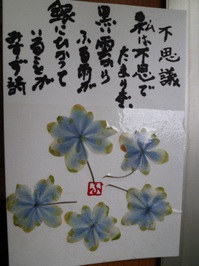 不思議
私は不思で
たまらない
黒い雲から
ふる雨が
銀にひかって
いることが
みすゞ詩